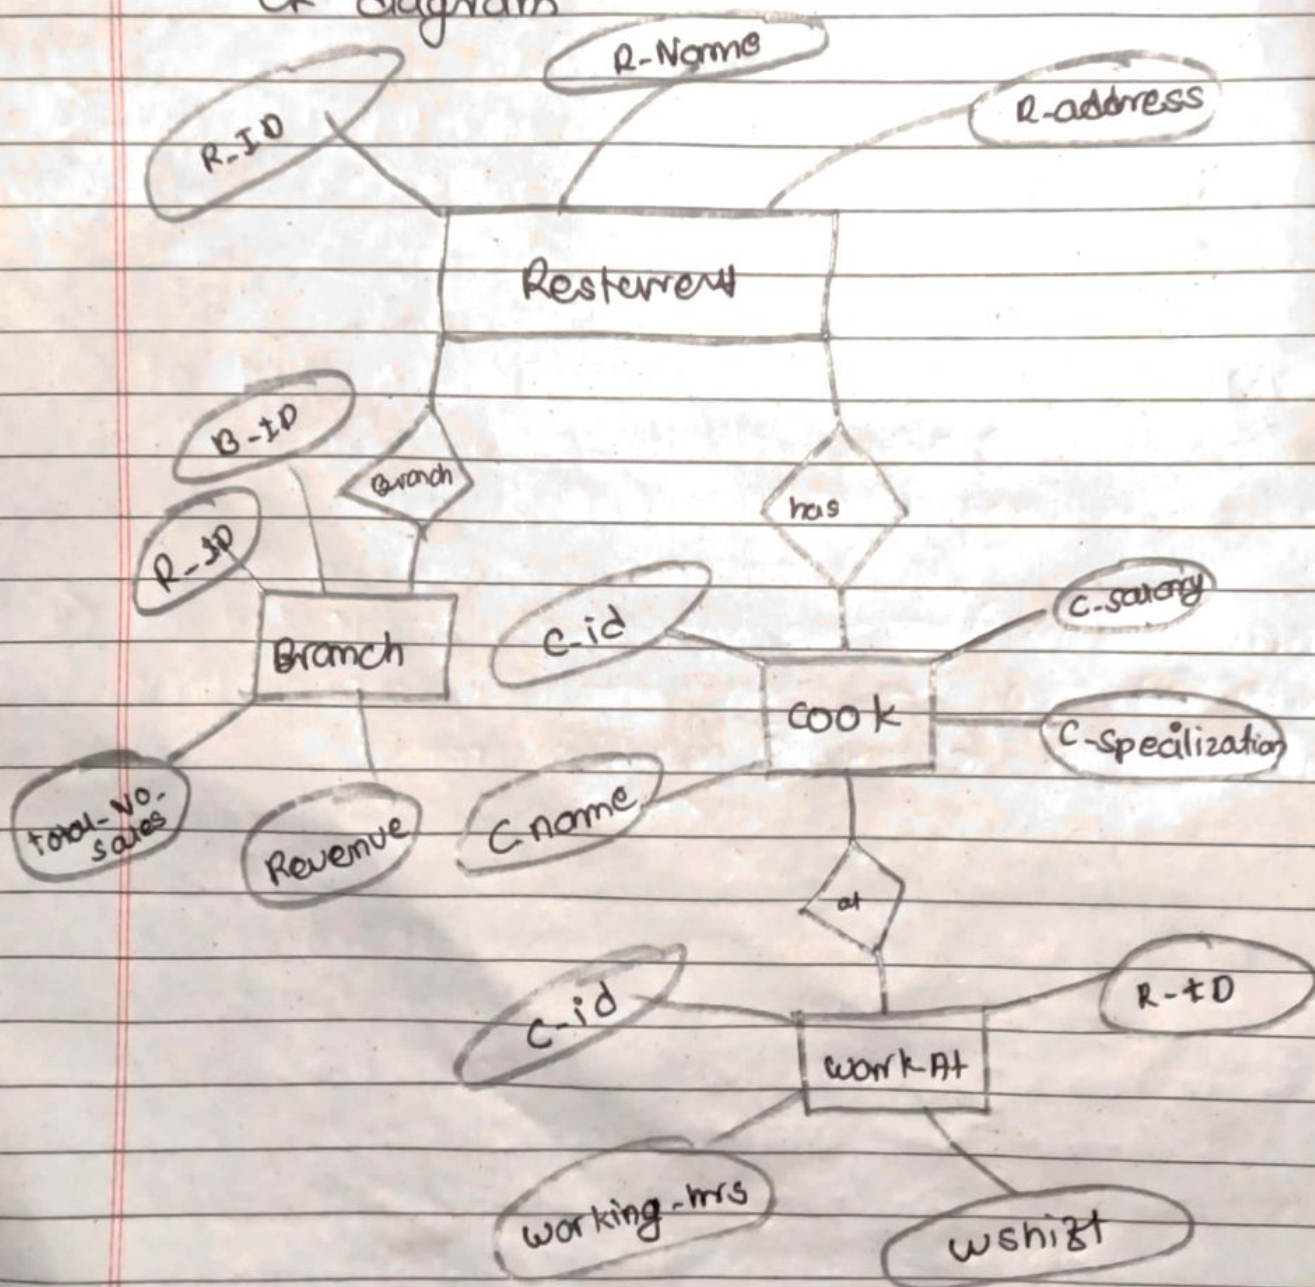 ER diagram
R-Name
R-address
R-ID
Resterrent
B-ID
Branch
has
R-ID
C-id
C-salary
Branch
Cook
C-specilization
total-No.
sales
Revenue
C name
at
C-id
R-ID
work-At
working-hrs
wshift